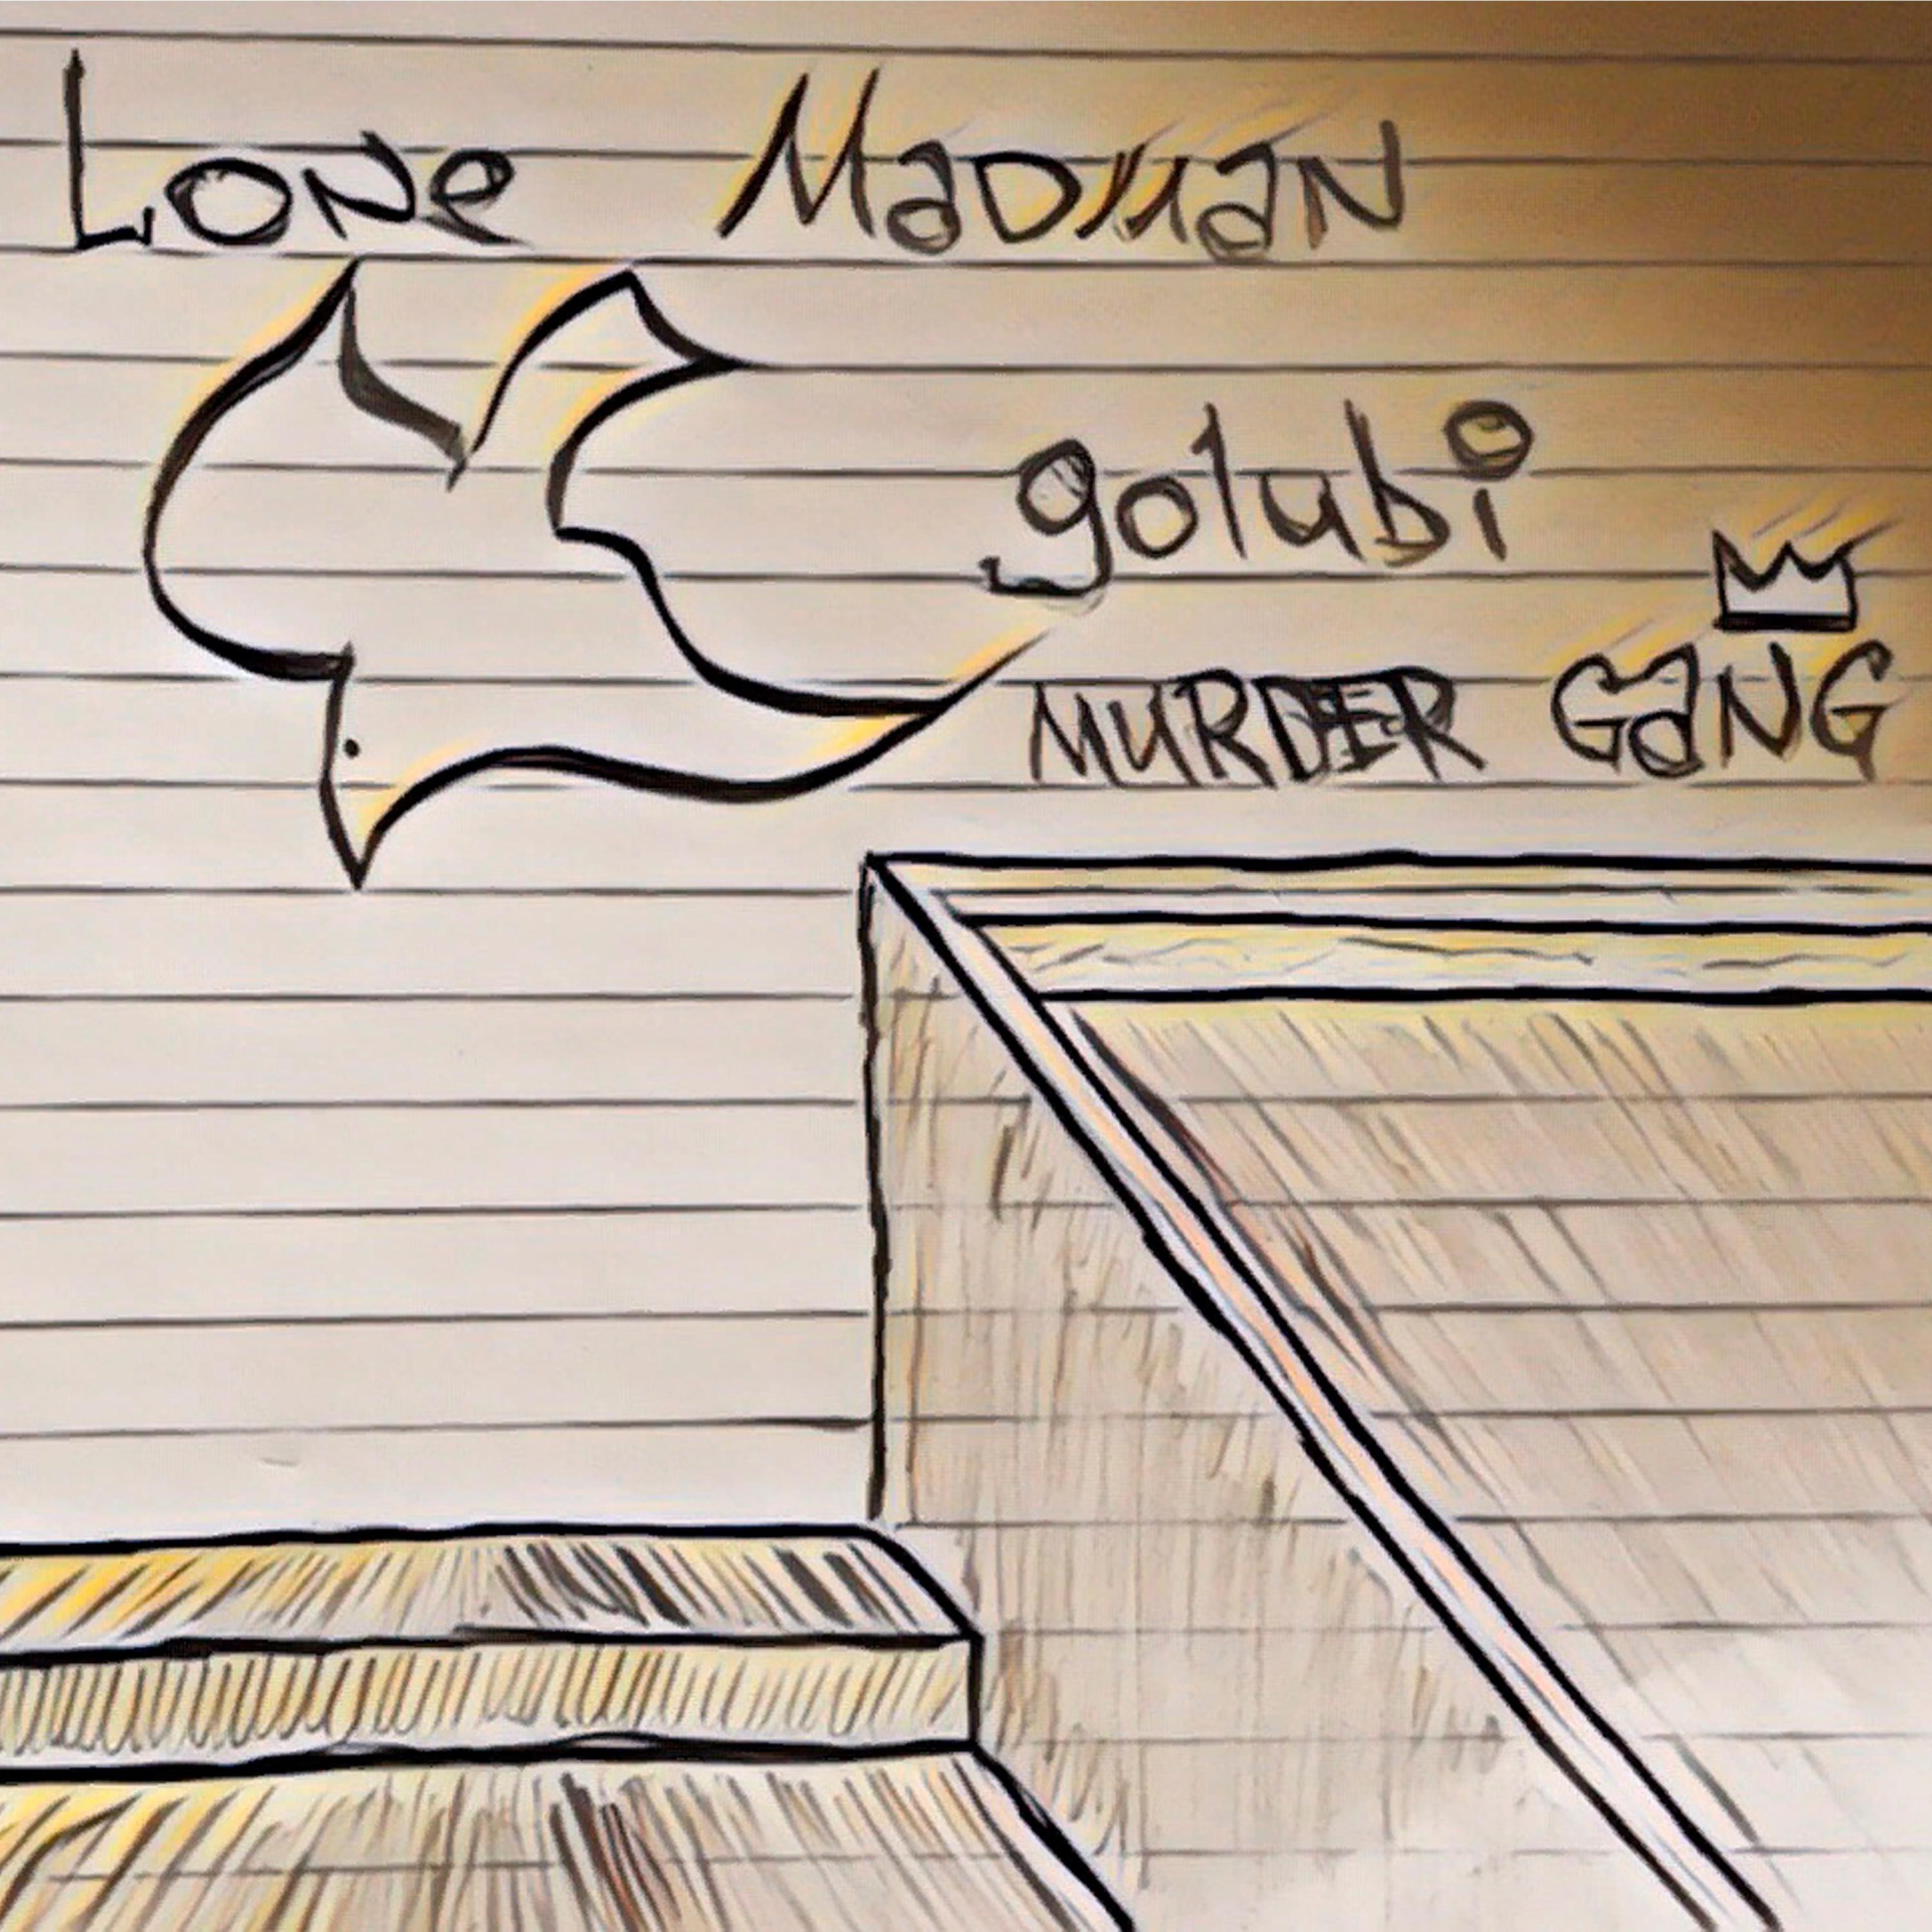 Lone Madman
golubi
MURDER GaNG